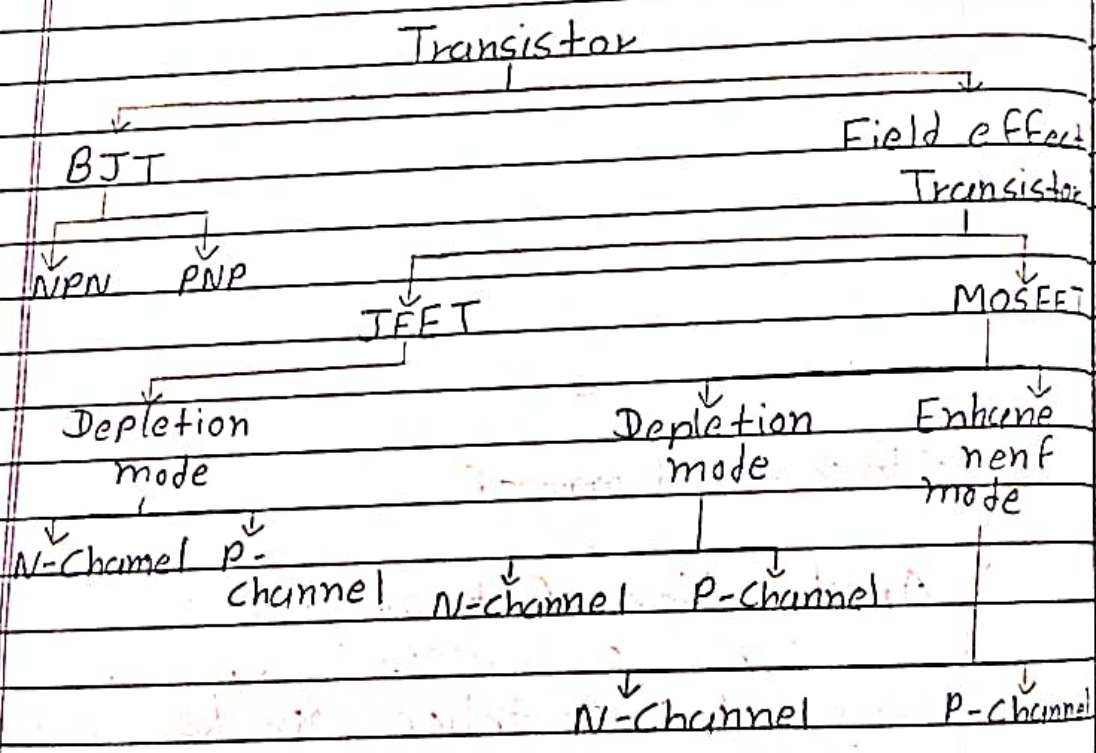 Transistor
Field effect
BJT
Transistor
NPN PNP
JFET
MOSFET
Depletion
mode
Depletion
mode
Enhane
nent
mode
N-Chamel P-
channel
N-channel P-Channel
N-Channel P-Channel